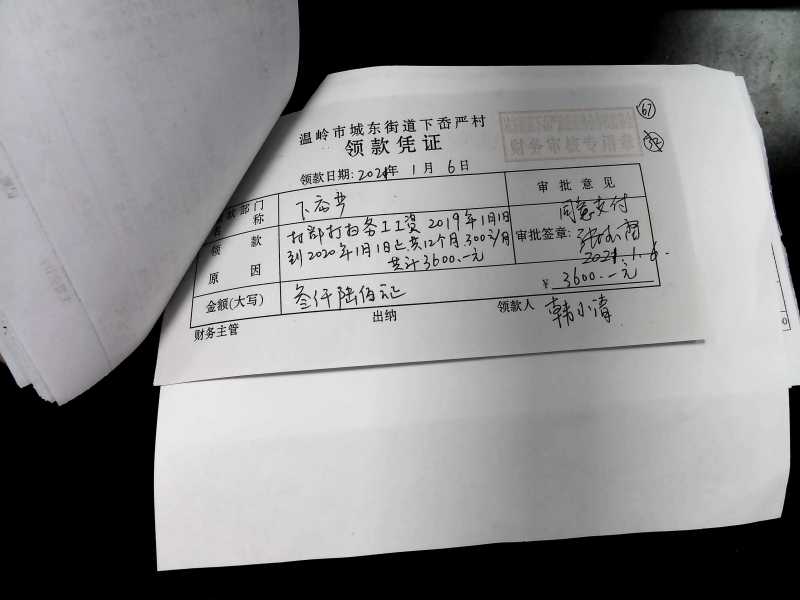 温岭市城东街道下岙严村
领款凭证
67
财务审核专用章
领款日期:2021年 1 月 6 日
款部门
名 称
下岙严
审 批 意 见
同意支付
领 款
原 因
打部打扫务工工资 2019年1月1日
到2020年1月1日止共12个月.300元/月
共计3600.—元
审批签章:
2021.1.6.
金额(大写)
叁仟陆佰元正
¥ 3600.—元
财务主管
出纳
领款人
韩小清